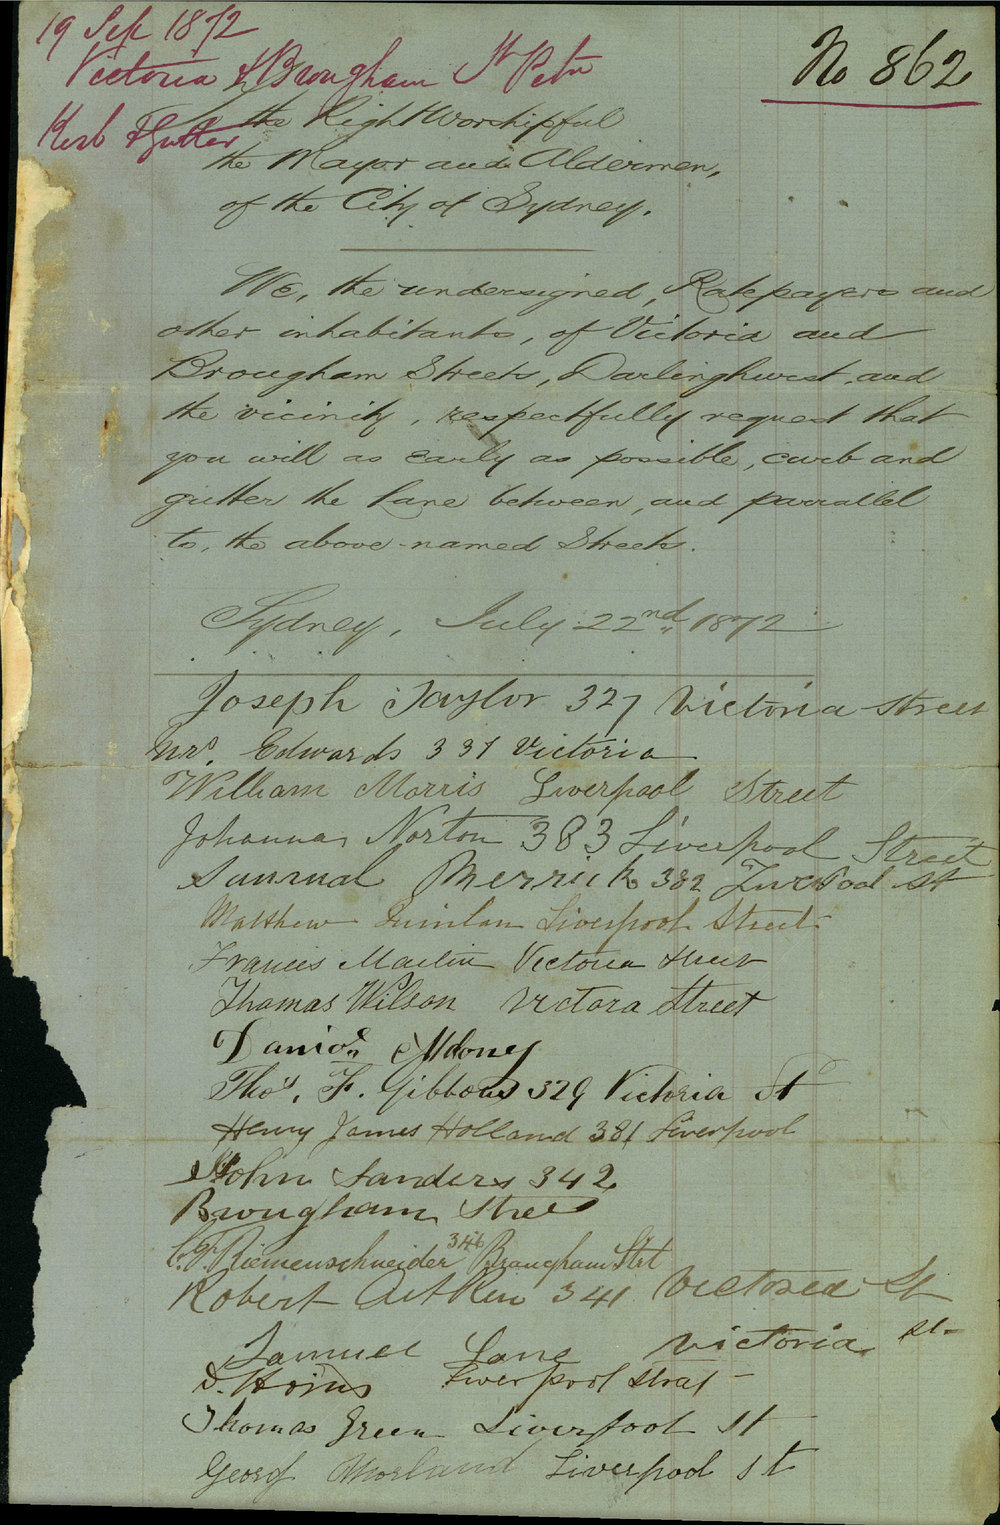 19 Sep 1872
Victoria & Brougham St Petn
No 862
Kerb & Gutter
To the Right Worshipful
the Mayor and Aldermen,
of the City of Sydney.
We, the undersigned, Ratepayers and
other inhabitants, of Victoria and
Brougham Streets, Darlinghurst, and
the vicinity, respectfully request that
you will as early as possible, curb and
gutter the Lane between, and parrallel
to, the above-named Streets.
Sydney, July 22nd 1872
Joseph Taylor 327 Victoria Street
Mrs. Edwards 331 Victoria
William Morris Liverpool Street
Johanna Norton 383 Liverpool Street
Samual Merrick 382 Liverpool St
Matthew Quinlan Liverpool Street
Francis Martin Victoria Street
Thomas Wilson Victora Street
Thos. F. Gibbons 329 Victoria St
Henry James Holland 381 Liverpool
John Sanders 342
Brougham Street
C. F. Riemenschneider 346 Brougham Strt
Robert Aitken 341 Victoria St
Samuel Lane Victoria St
Liverpool Strat
Thomas Green Liverpool St
Georg Morland Liverpool St